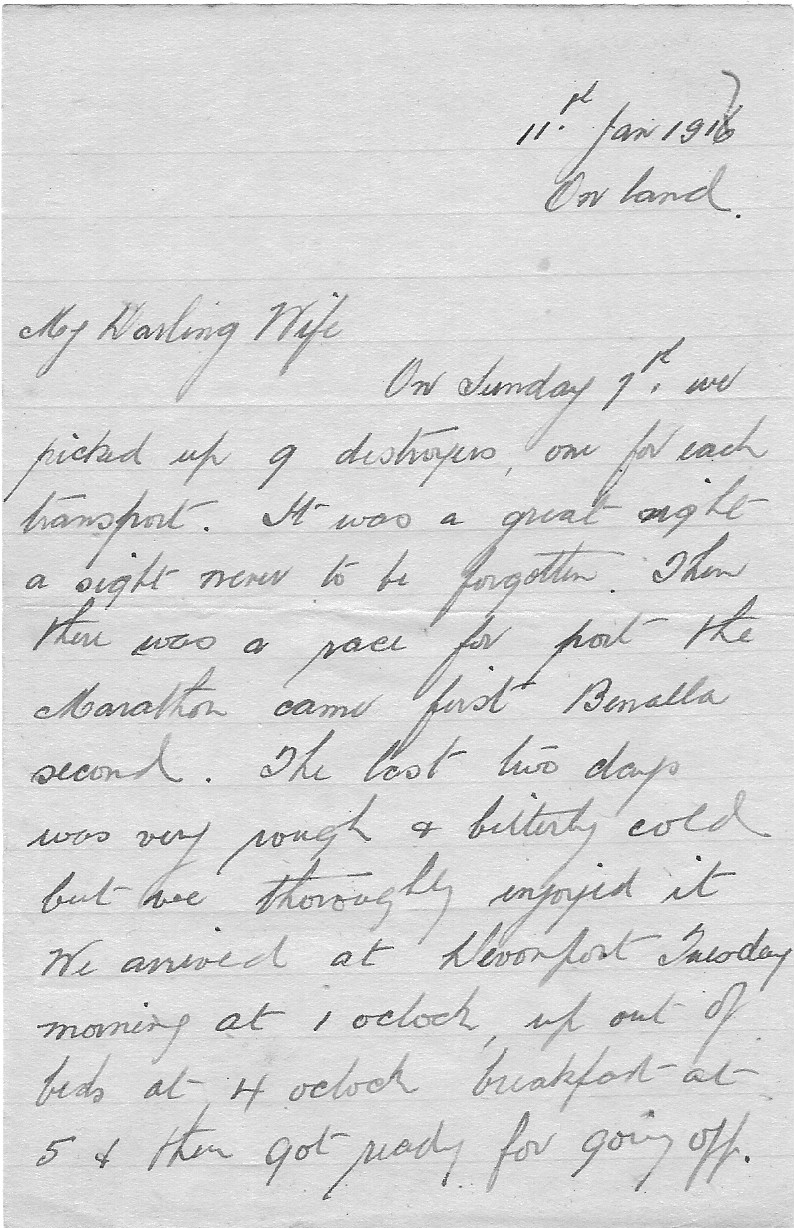 11.st Jan 1917
On land.
My Darling Wife
On Sunday 7st. we
picked up 9 destroyers, one for each
transport. It was a great sight
a sight never to be forgotten. Then
there was a race for port the
Marathon came first Benalla
second. The last two days
was very rough & bitterly cold
but we thoroughly enjoyed it
We arrived at Devonport Tuesday
morning at 1 oclock, up out of
beds at 4 oclock breakfast at
5 & then got ready for going off.